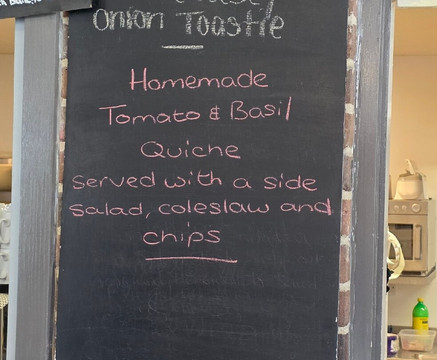 Onion Toastie
Homemade
Tomato & Basil
Quiche
served with a side
salad, coleslaw and
chips